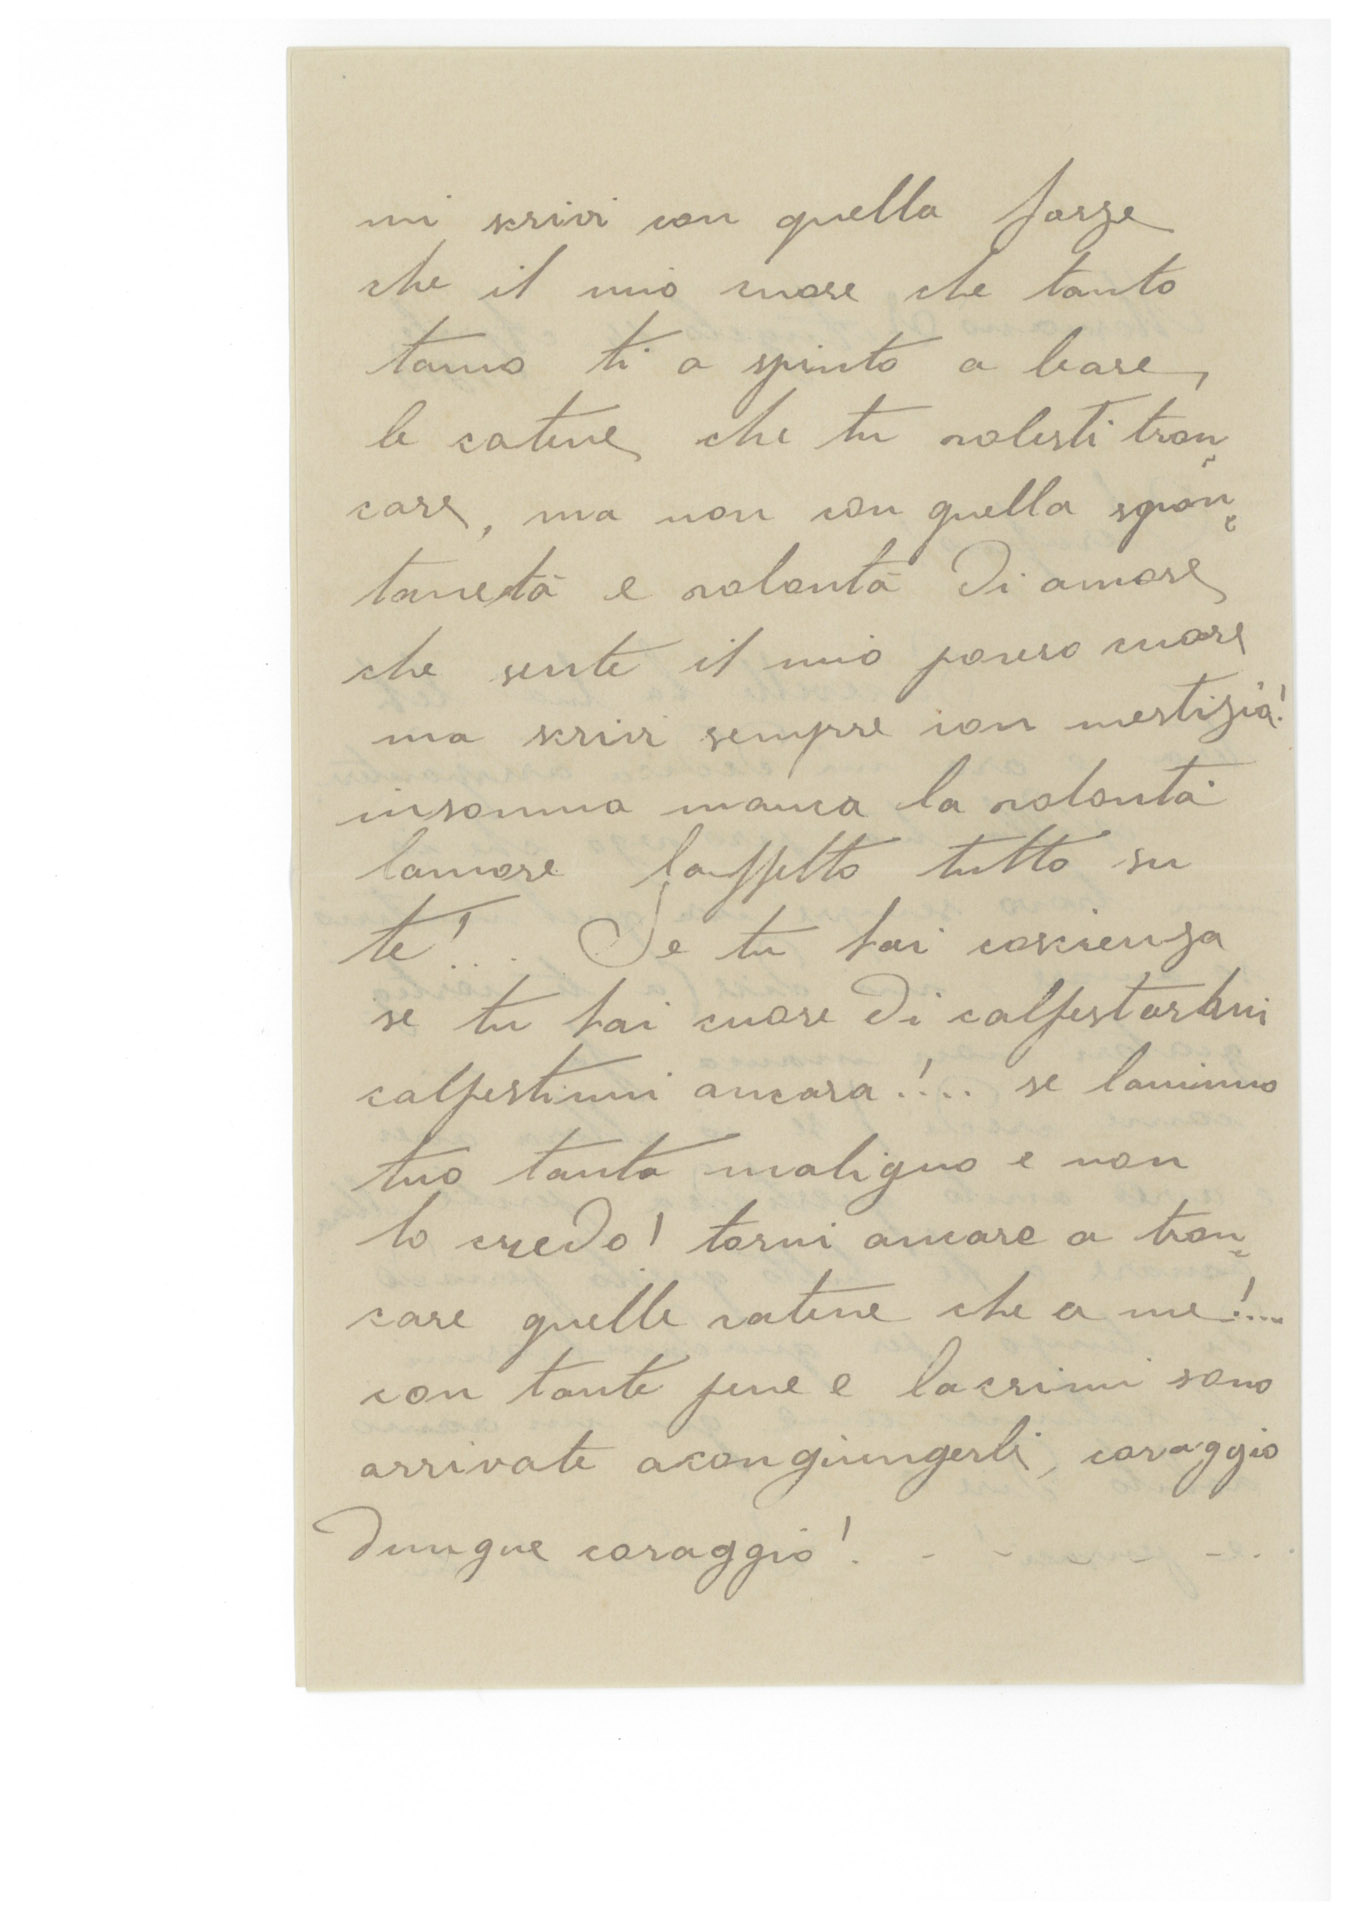 mi scrivi con quella forze
che il mio cuore che tanto
tamo ti a spinto a leare
le catene che tu volesti tron-
care, ma non con quella spon-
tanetà e volontà di amore
che sente il mio povero cuore
ma scrivi sempre con mestizia!
insomma manca la volontà
lamore laffetto tutto su
te!... Se tu hai coscienza
se tu hai cuore di calpestarmi
calpestimi ancora!... se lanimo
tuo tanto maligno e non
lo credo! torni ancare a tron-
care quelle catene che a me!....
con tante pene e lacrimi sono
arrivate acongiungerli, coraggio
dunque coraggio! . - - - - - . .